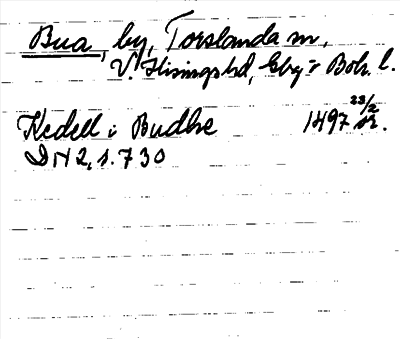 Bua, by, Torslanda sn,
V. Hisings hd, Gbg o Boh. l.
Kedell i Budhe 1497 23/2 or.
DN 2, s. 730